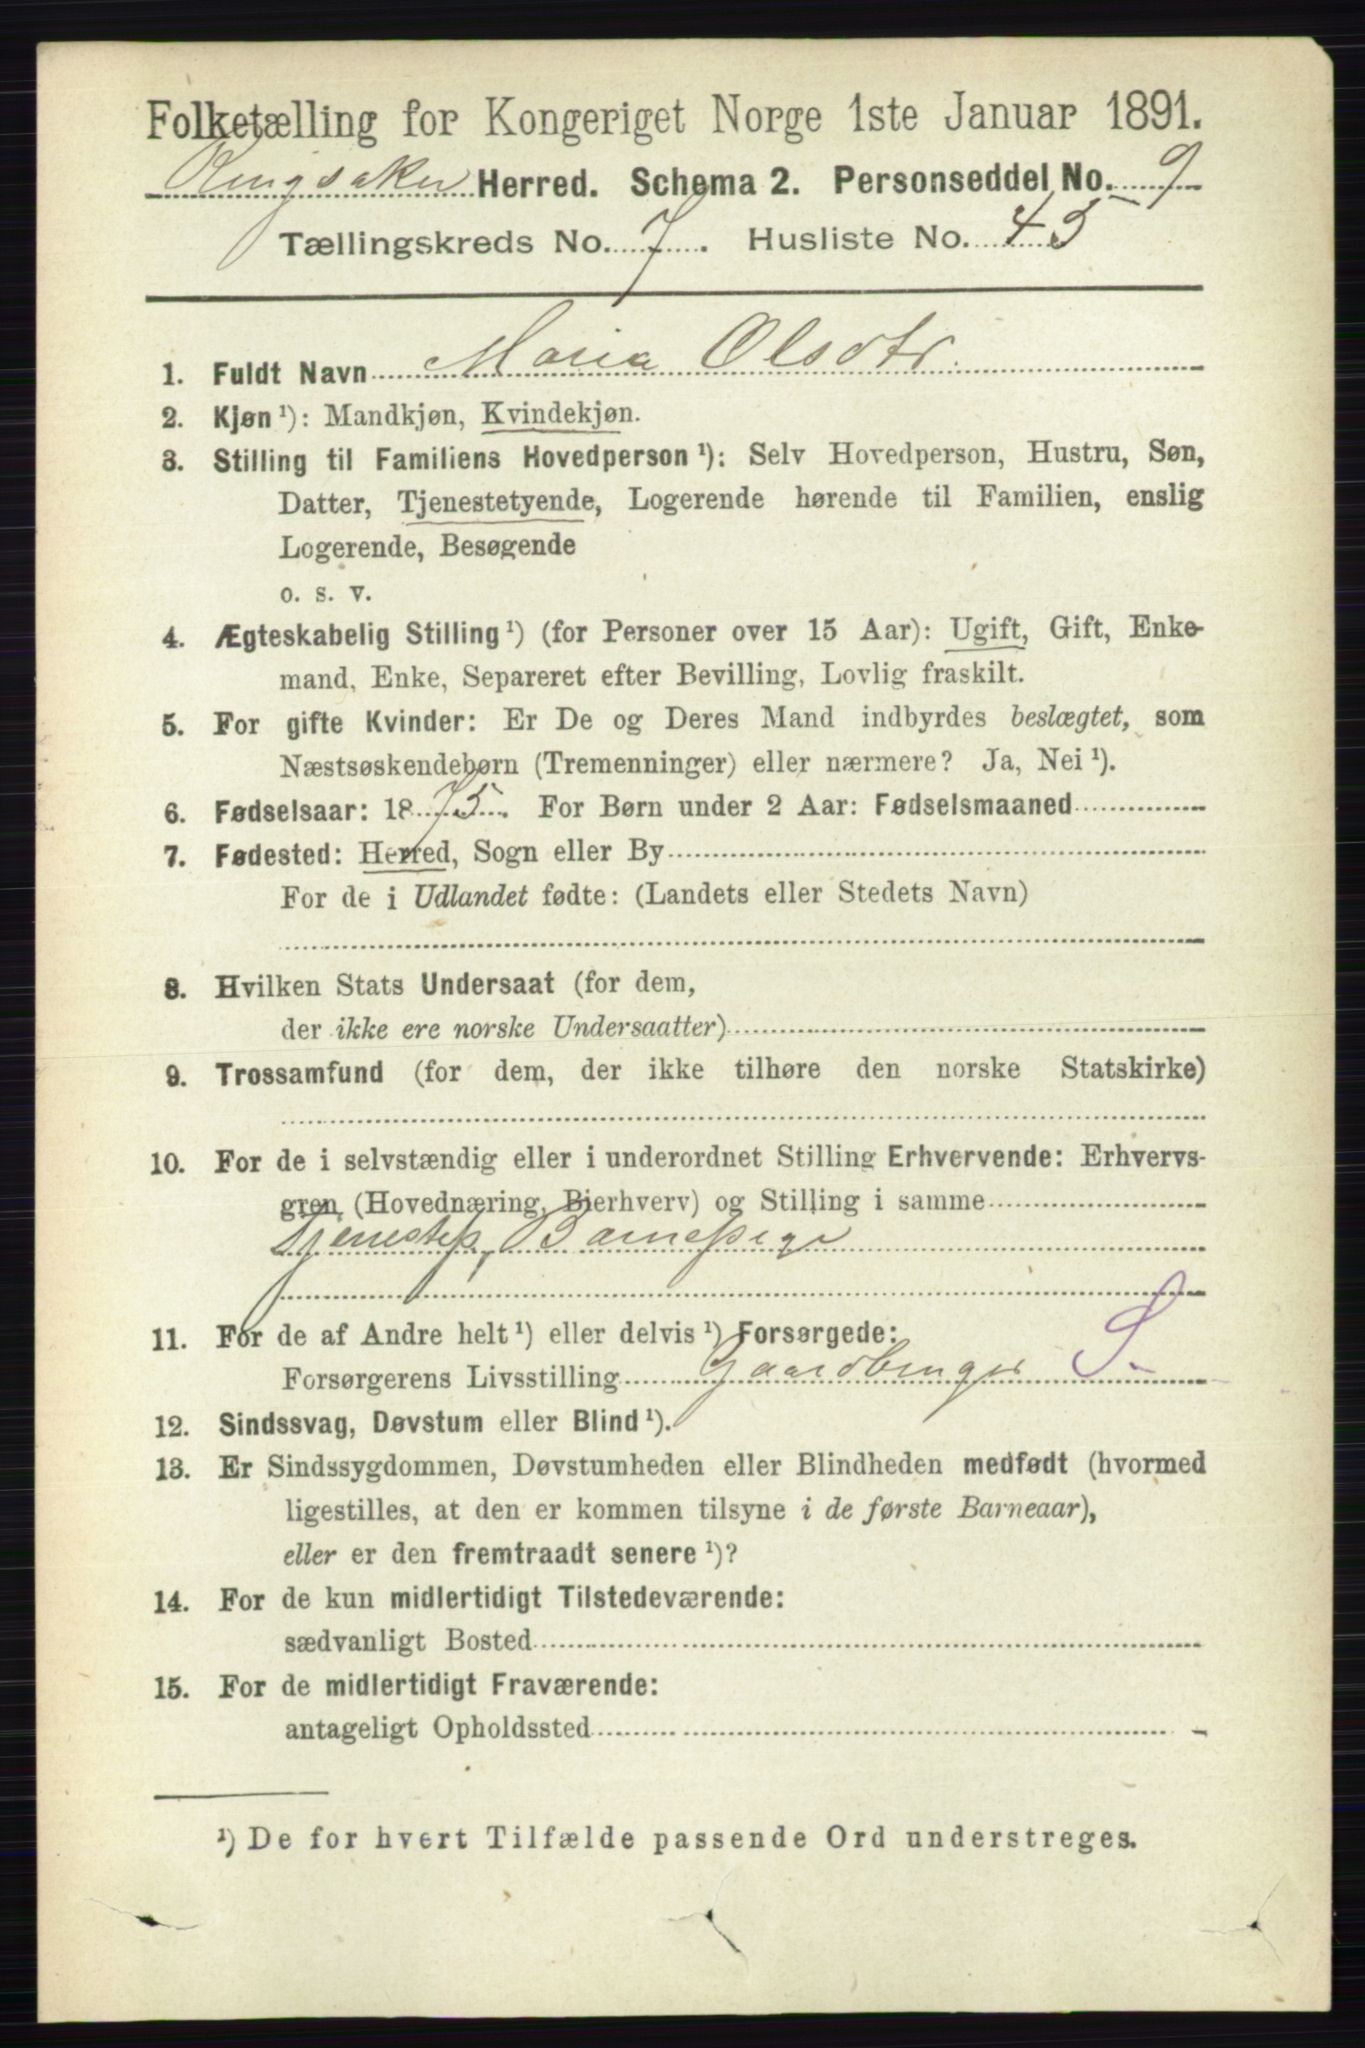 Folketælling for Kongeriget Norge 1ste Januar 1891.
Ringsaker Herred. Schema 2. Personseddel No. 9
Tællingskreds No. 7. Husliste No. 45
1. Fuldt Navn Maria Olsdtr.
2. Kjøn ¹): Mandkjøn, Kvindekjøn.
3. Stilling til Familiens Hovedperson ¹): Selv Hovedperson, Hustru, Søn,
Datter, Tjenestetyende, Logerende hørende til Familien, enslig
Logerende, Besøgende
o. s. v.
4. Ægteskabelig Stilling ¹) (for Personer over 15 Aar): Ugift, Gift, Enke-
mand, Enke, Separeret efter Bevilling, Lovlig fraskilt.
5. For gifte Kvinder: Er De og Deres Mand indbyrdes beslægtet, som
Næstsøskendebørn (Tremenninger) eller nærmere? Ja, Nei ¹).
6. Fødselsaar: 1875. For Børn under 2 Aar: Fødselsmaaned
7. Fødested: Herred, Sogn eller By
For de i Udlandet fødte: (Landets eller Stedets Navn)
8. Hvilken Stats Undersaat (for dem,
der ikke ere norske Undersaatter)
9. Trossamfund (for dem, der ikke tilhøre den norske Statskirke)
10. For de i selvstændig eller i underordnet Stilling Erhvervende: Erhvervs-
gren (Hovednæring, Bierhverv) og Stilling i samme
Tjenestep, Barnepige
11. For de af Andre helt ¹) eller delvis ¹) Forsørgede:
Forsørgerens Livsstilling Gaardbruger S.
12. Sindssvag, Døvstum eller Blind ¹).
13. Er Sindssygdommen, Døvstumheden eller Blindheden medfødt (hvormed
ligestilles, at den er kommen tilsyne i de første Barneaar),
eller er den fremtraadt senere ¹)?
14. For de kun midlertidigt Tilstedeværende:
sædvanligt Bosted
15. For de midlertidigt Fraværende:
antageligt Opholdssted
¹) De for hvert Tilfælde passende Ord understreges.